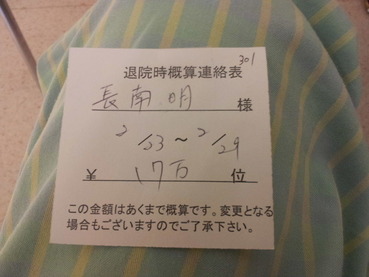 301
退院時概算連絡表
長南 明 様
2/23〜2/29
¥ 17万 位
この金額はあくまで概算です。変更となる
場合もございますのでご了承下さい。